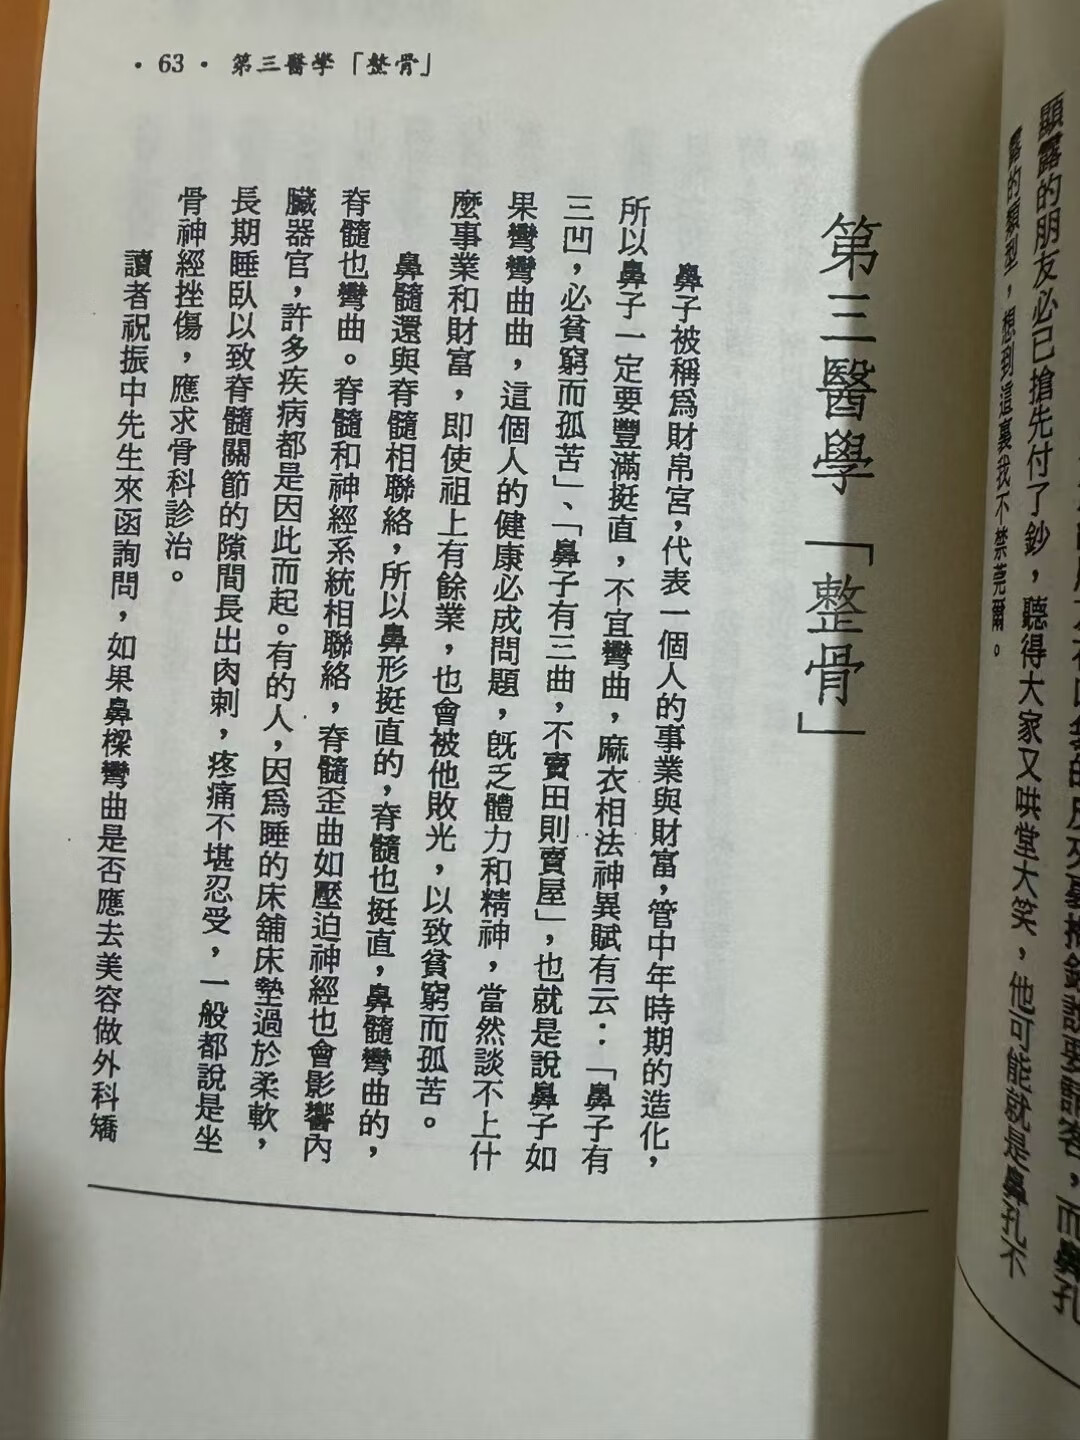 的皮夾裏掏錢說要請客，而鼻孔
顯露的朋友必已搶先付了鈔，聽得大家又哄堂大笑，他可能就是鼻孔不
露的類型，想到這裏我不禁莞爾。
• 63 • 第三醫學「整骨」
第三醫學「整骨」
鼻子被稱爲財帛宮，代表一個人的事業與財富，管中年時期的造化，
所以鼻子一定要豐滿挺直，不宜彎曲，麻衣相法神異賦有云：「鼻子有
三凹，必貧窮而孤苦」、「鼻子有三曲，不賣田則賣屋」，也就是說鼻子如
果彎彎曲曲，這個人的健康必成問題，旣乏體力和精神，當然談不上什
麼事業和財富，即使祖上有餘業，也會被他敗光，以致貧窮而孤苦。
鼻髓還與脊髓相聯絡，所以鼻形挺直的，脊髓也挺直，鼻髓彎曲的，
脊髓也彎曲。脊髓和神經系統相聯絡，脊髓歪曲如壓迫神經也會影響內
臟器官，許多疾病都是因此而起。有的人，因爲睡的床舖床墊過於柔軟，
長期睡臥以致脊髓關節的隙間長出肉刺，疼痛不堪忍受，一般都說是坐
骨神經挫傷，應求骨科診治。
讀者祝振中先生來函詢問，如果鼻樑彎曲是否應去美容做外科矯